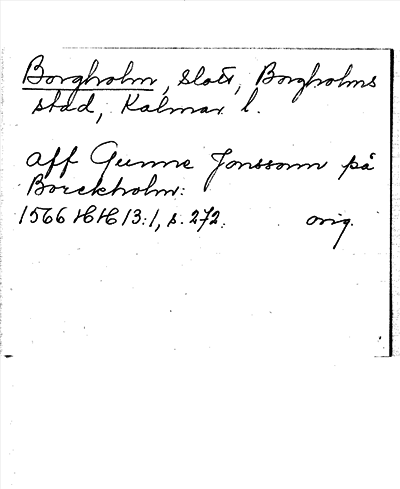 Borgholm, slott, Borgholms
stad, Kalmar l.
aff Gunne Jonssonn på
Borckholm:
1566 HH 13:1, s. 272. orig.